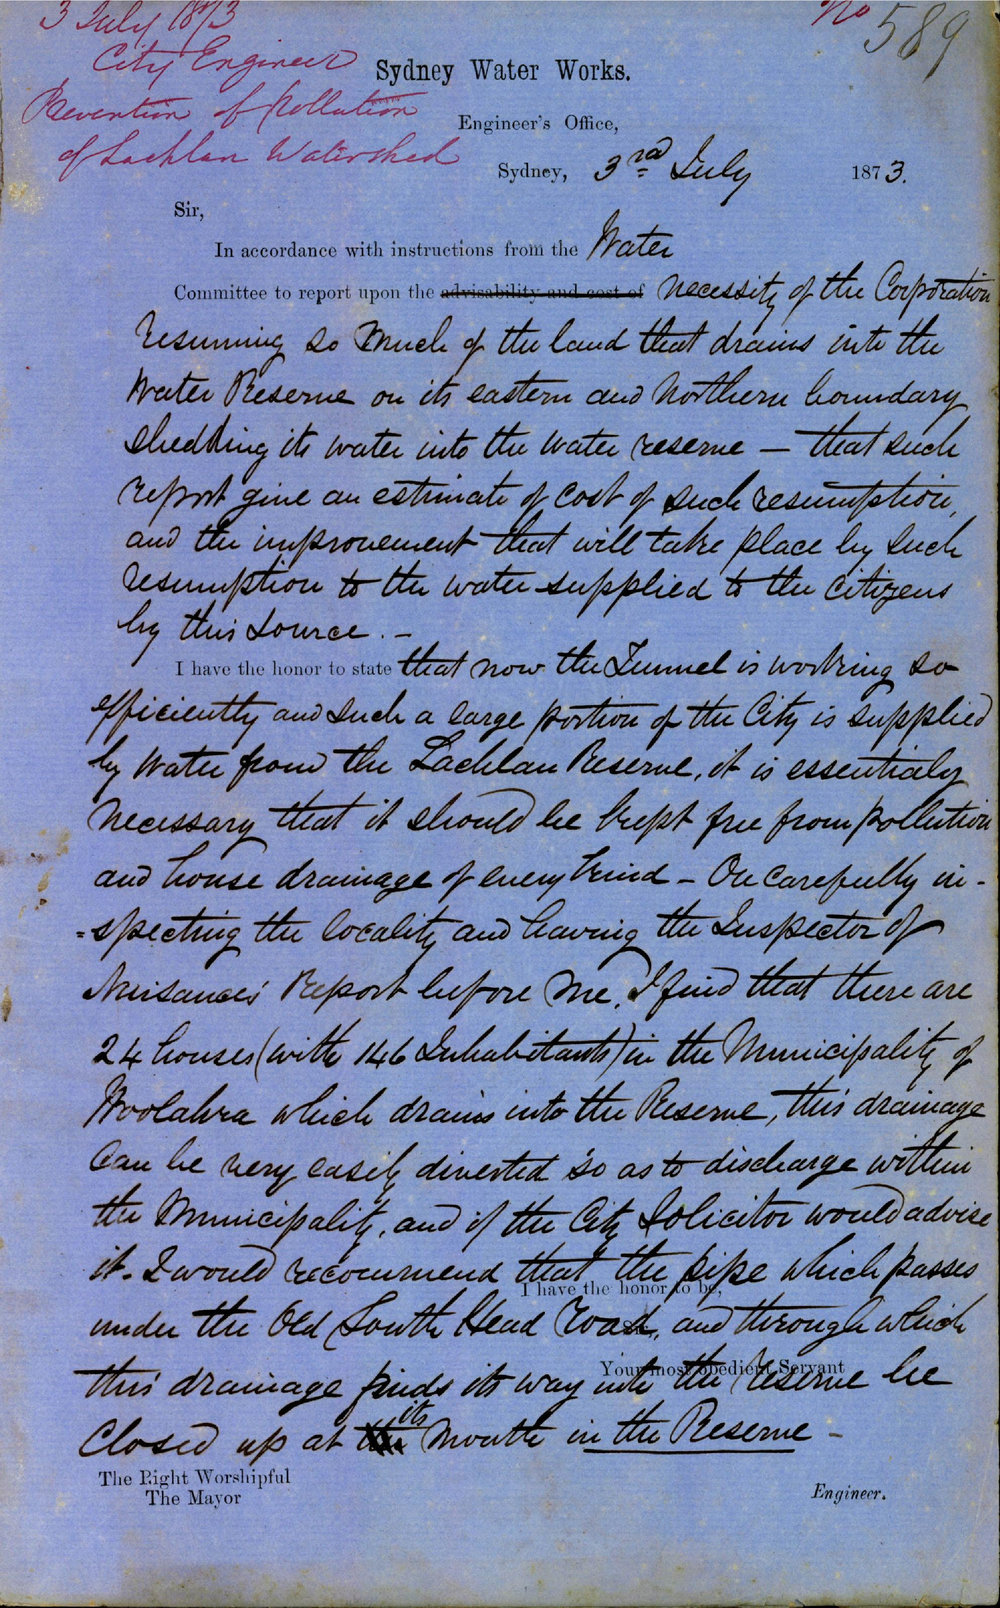 3 July 1873
No 589
City Engineer
Prevention of Pollution
of Lachlan Watershed
Sydney Water Works.
Engineer's Office,
Sydney, 3rd July 1873.
Sir,
In accordance with instructions from the Water
Committee to report upon the advisability and cost of necessity of the Corporation
resuming so much of the land that drains into the
Water Reserve on its eastern and Northern boundary
shedding its water into the water reserve — that such
report give an estimate of cost of such resumption,
and the improvement that will take place by such
resumption to the water supplied to the citizens
by this source. –
I have the honor to state that now the Tunnel is working so
efficiently and such a large portion of the City is supplied
by Water from the Lachlan Reserve, it is essentialy
necessary that it should be kept free from pollution
and house drainage of every kind – On carefully in-
=specting the locality and having the Inspector of
Nuisances' Report before me, I find that there are
24 houses (with 146 Inhabitants) in the Municipality of
Woolahra which drains into the Reserve, this drainage
can be very easily diverted so as to discharge within
the Municipality, and if the City Solicitor would advise
it. I would recommend that the pipe which passes
I have the honor to be,
under the Old South Head road, and through which
Your most obedient Servant
this drainage finds its way into the reserve be
Closed up at the its Mouth in the Reserve –
The Right Worshipful
The Mayor
Engineer.